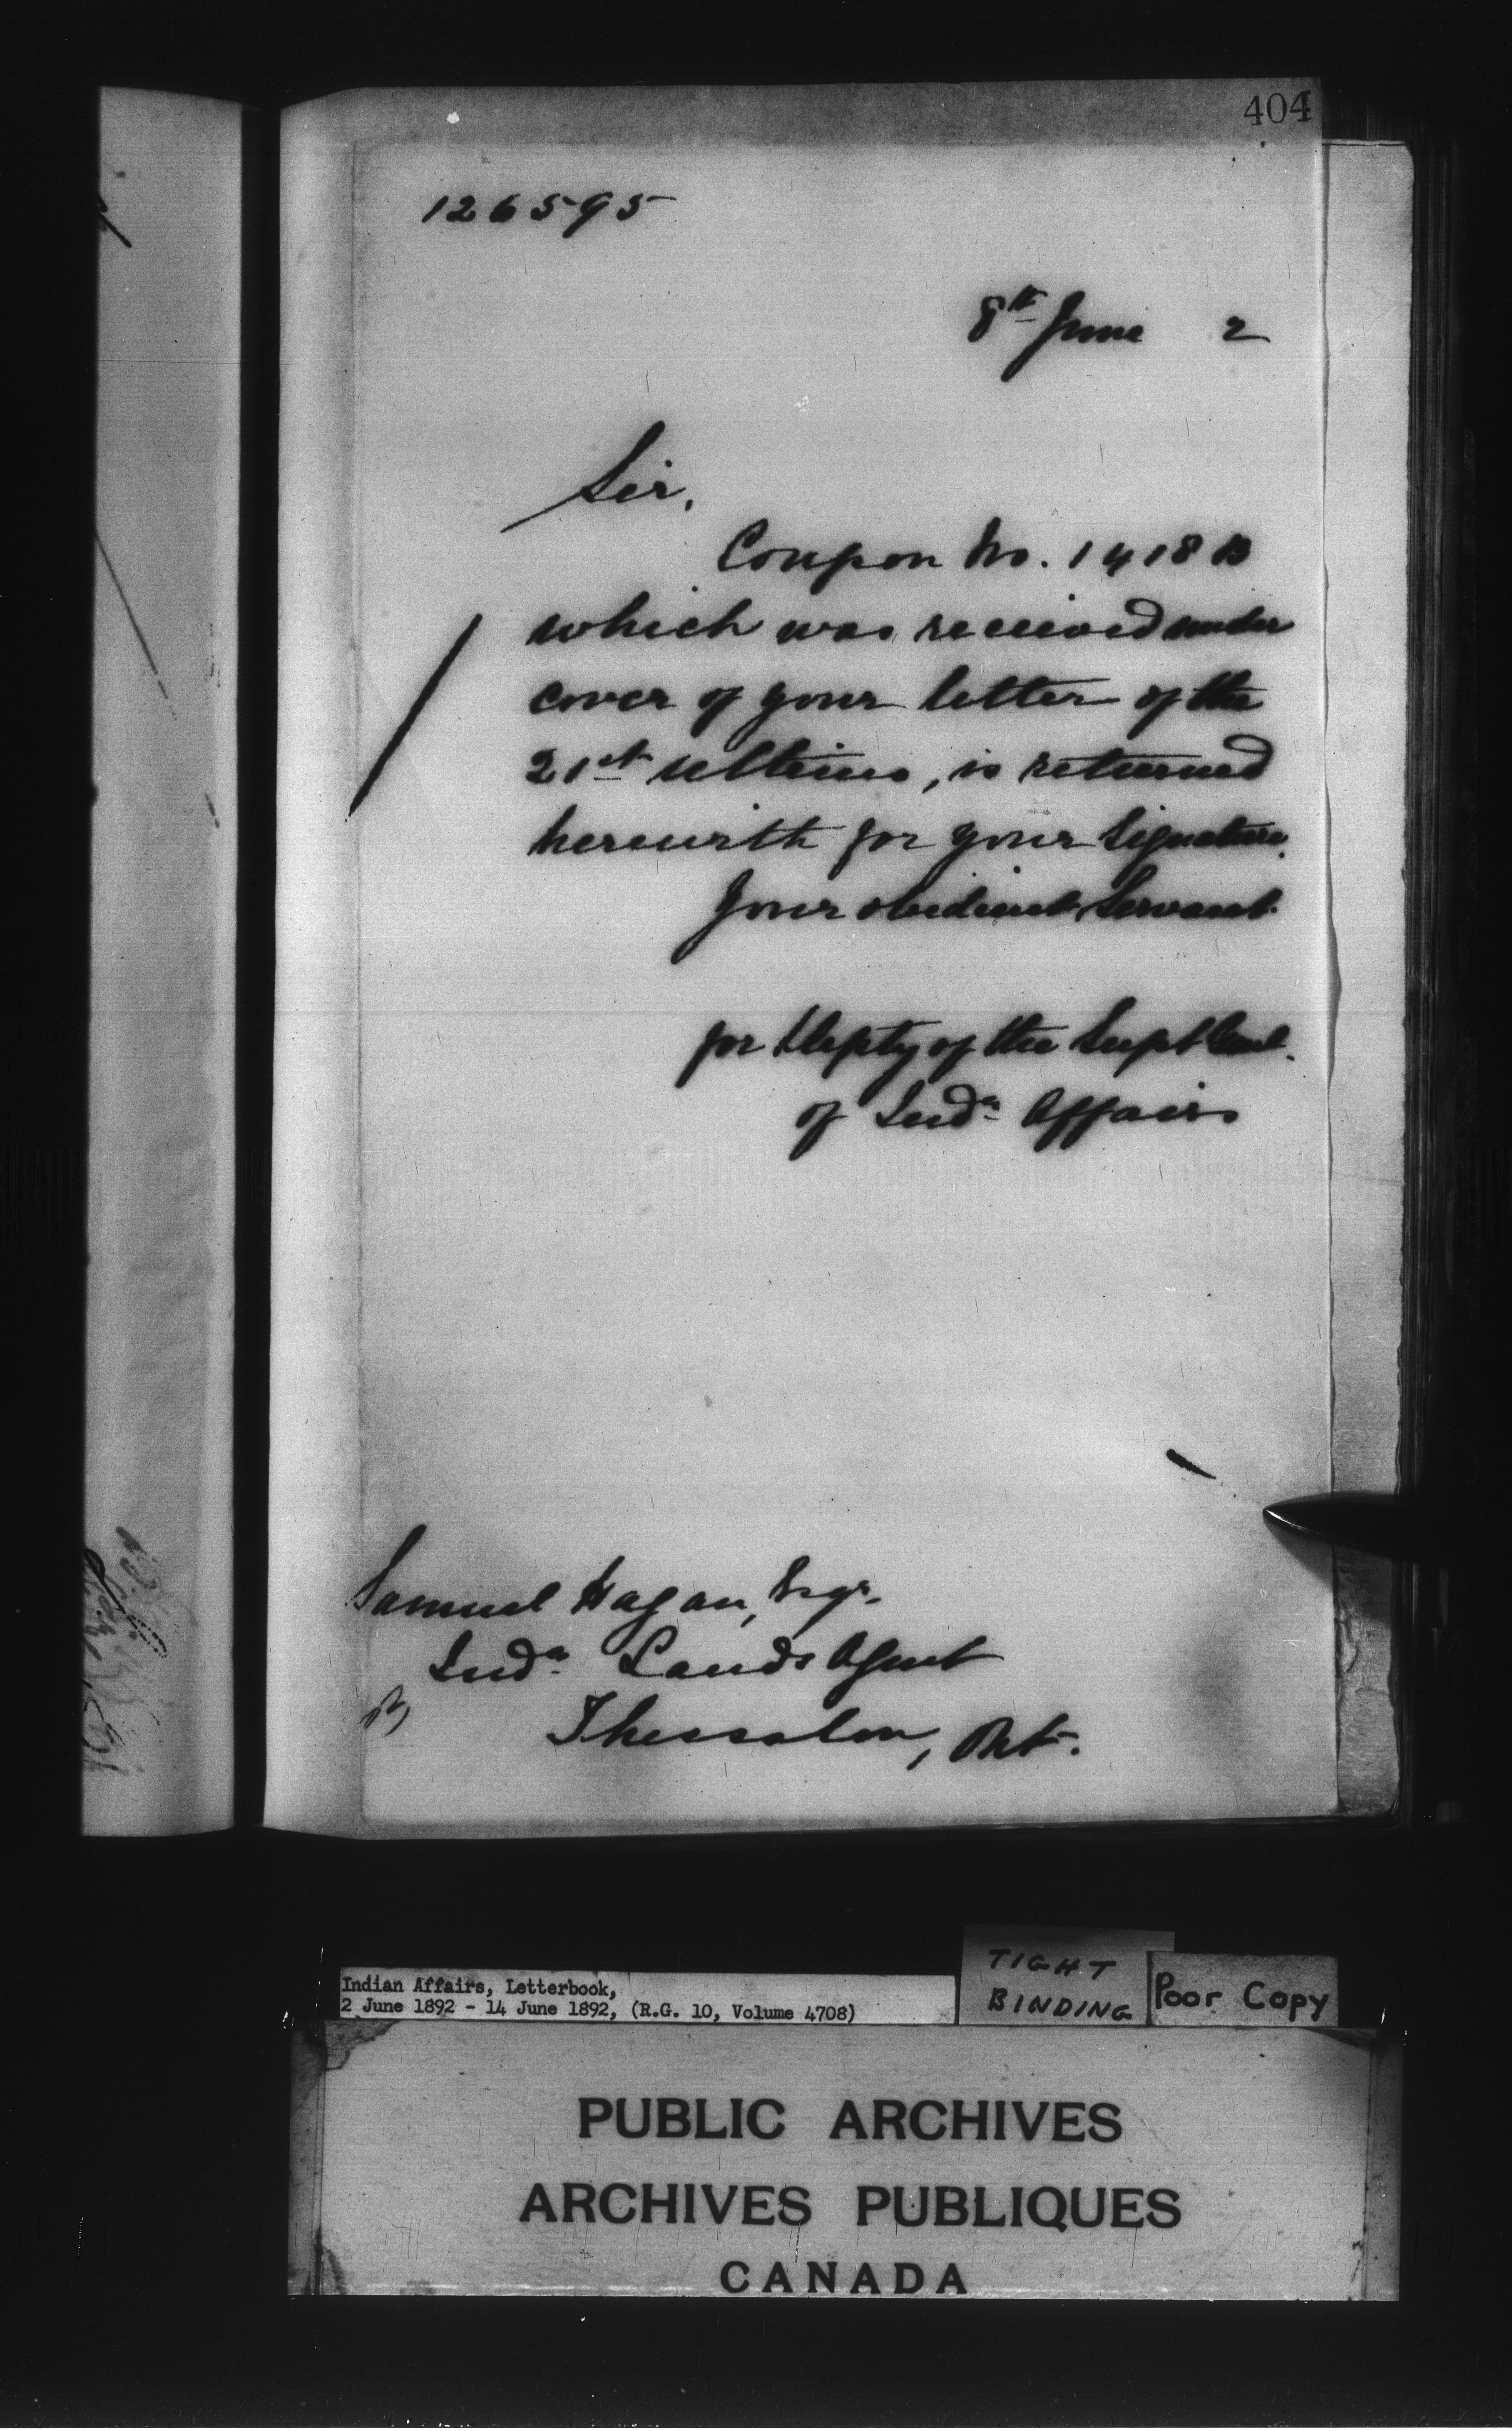 404
126595
8th June 2
Sir,
Coupon No. 1418 B
which was received under
cover of your letter of the
21st ultimo, is returned
herewith for your signature.
Your obedient Servant.
for Depty of the Supt Genl.
of Indn Affairs
Samuel Hagan, Esqr.
Indn Lands Agent
Thessalon, Ont.
Indian Affairs, Letterbook,
2 June 1892 - 14 June 1892, (R.G. 10, Volume 4708)
TIGHT
BINDING
Poor Copy
PUBLIC ARCHIVES
ARCHIVES PUBLIQUES
CANADA